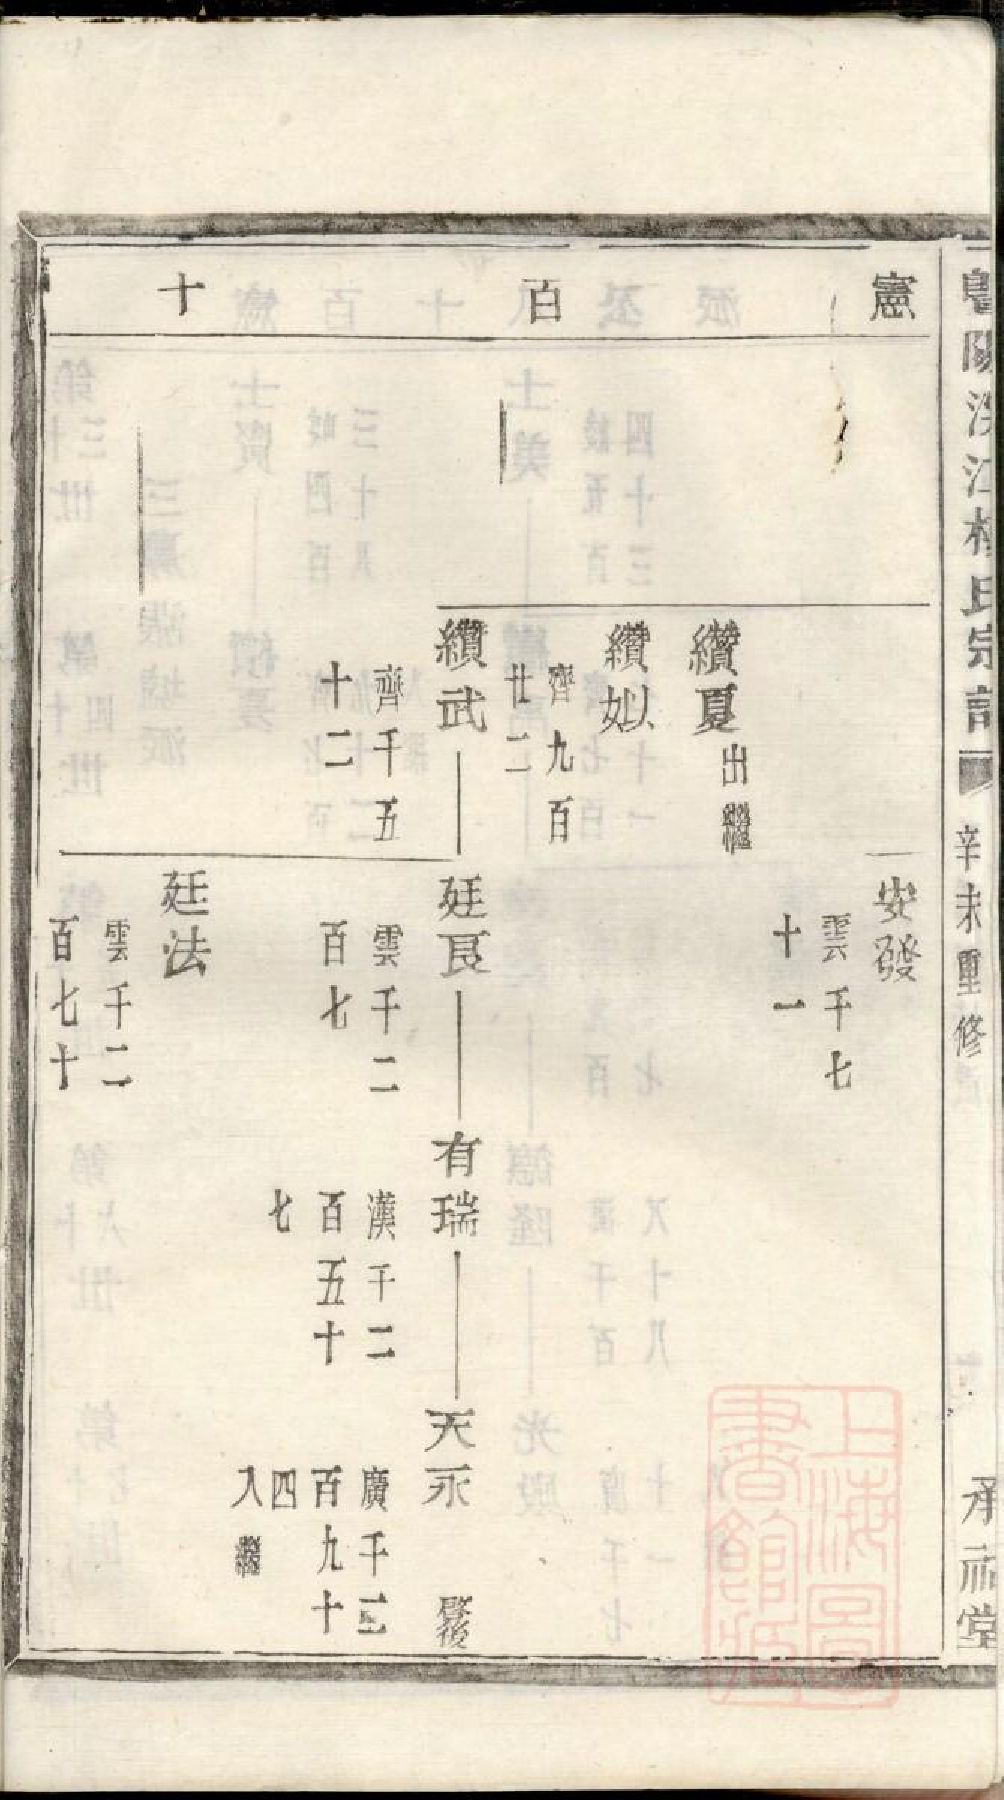 憲 百 十
安發
雲千七
十一
纘夏 出繼
纘㚶
齊九百
廿二
纘武
齊千五
十二
廷良
雲千二
百七
有瑞
漢千二
百五十
七
天永
廣千二
百九十
四
入繼
廷法
雲千二
百七十
江 氏宗譜
辛未重修
承祐堂
上海圖
書館藏